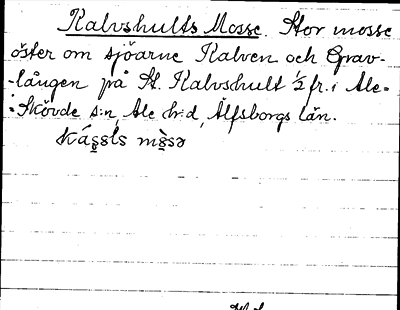 Kalvshults Mosse. Stor mosse
öster om sjöarne Kalven och Grav-
-lången på St. Kalvshult ½ fr. i Ale-
-Skövde s:n, Ale h:d, Älfsborgs län.